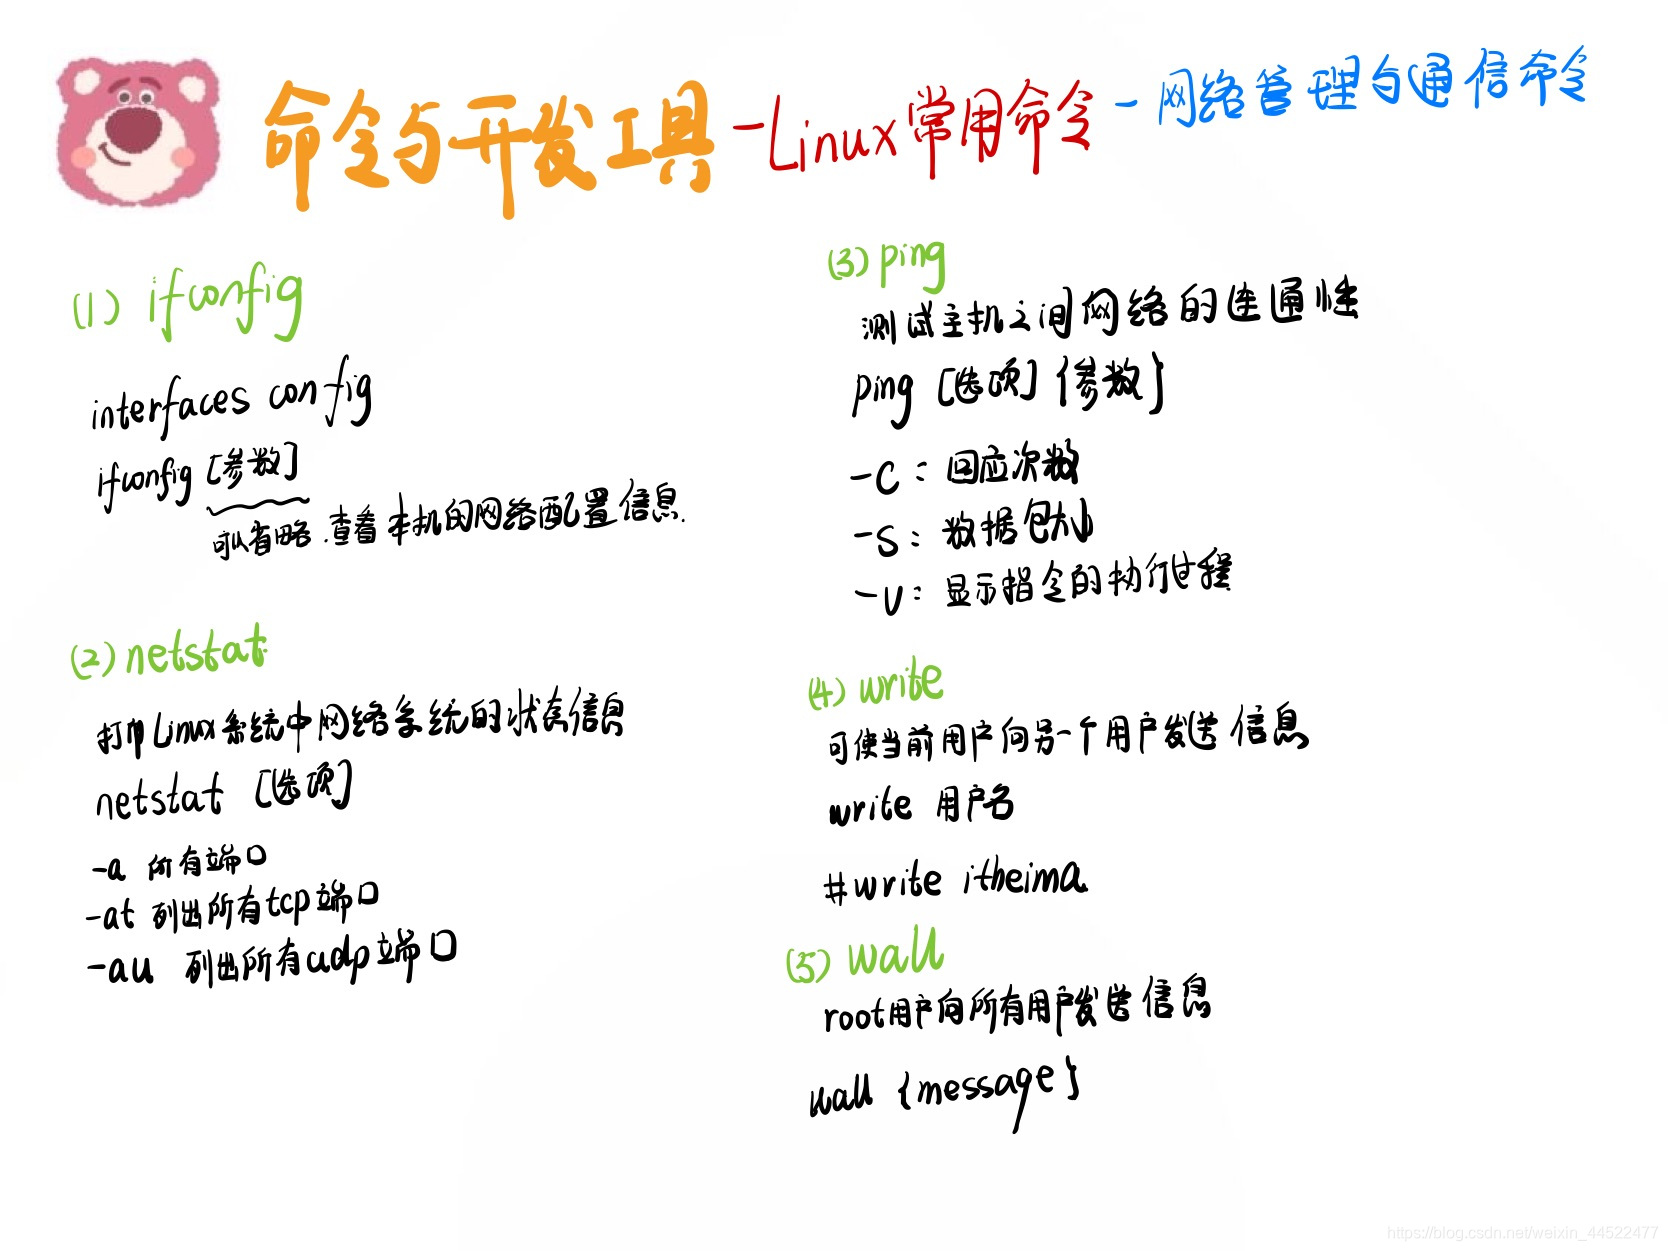 命令与开发工具-Linux常用命令-网络管理与通信命令
(1) ifconfig
interfaces config
ifconfig [参数]
可以省略.查看本机的网络配置信息.
(2) netstat
打印Linux系统中网络系统的状态信息
netstat [选项]
-a 所有端口
-at 列出所有tcp端口
-au 列出所有udp端口
(3) ping
测试主机之间网络的连通性
ping [选项] {参数}
-c: 回应次数
-s: 数据包大小
-v: 显示指令的执行过程
(4) write
可使当前用户向另一个用户发送信息
write 用户名
#write itheima
(5) wall
root用户向所有用户发送信息
wall {message}
https://blog.csdn.net/weixin_44522477